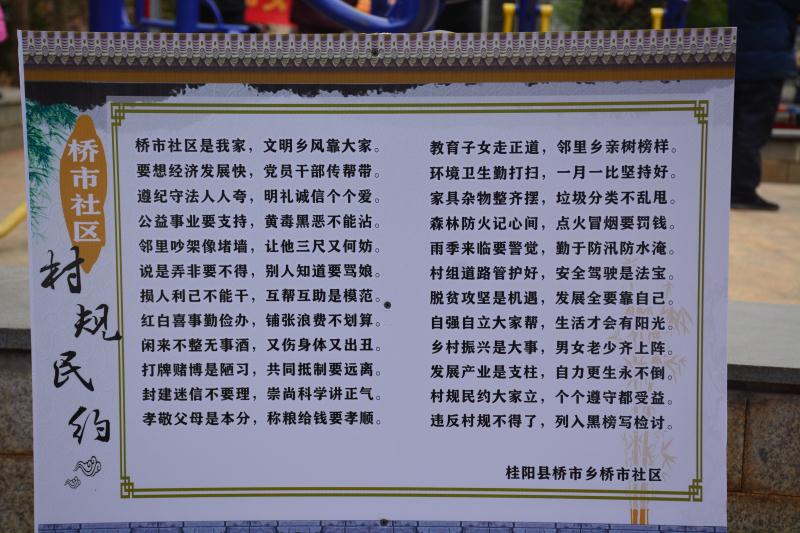 桥市社区
村规民约
桥市社区是我家，文明乡风靠大家。
要想经济发展快，党员干部传帮带。
遵纪守法人人夸，明礼诚信个个爱。
公益事业要支持，黄毒黑恶不能沾。
邻里吵架像堵墙，让他三尺又何妨。
说是弄非要不得，别人知道要骂娘。
损人利己不能干，互帮互助是模范。
红白喜事勤俭办，铺张浪费不划算。
闲来不整无事酒，又伤身体又出丑。
打牌赌博是陋习，共同抵制要远离。
封建迷信不要理，崇尚科学讲正气。
孝敬父母是本分，称粮给钱要孝顺。
教育子女走正道，邻里乡亲树榜样。
环境卫生勤打扫，一月一比坚持好。
家具杂物整齐摆，垃圾分类不乱甩。
森林防火记心间，点火冒烟要罚钱。
雨季来临要警觉，勤于防汛防水淹。
村组道路管护好，安全驾驶是法宝。
脱贫攻坚是机遇，发展全要靠自己。
自强自立大家帮，生活才会有阳光。
乡村振兴是大事，男女老少齐上阵。
发展产业是支柱，自力更生永不倒。
村规民约大家立，个个遵守都受益。
违反村规不得了，列入黑榜写检讨。
桂阳县桥市乡桥市社区